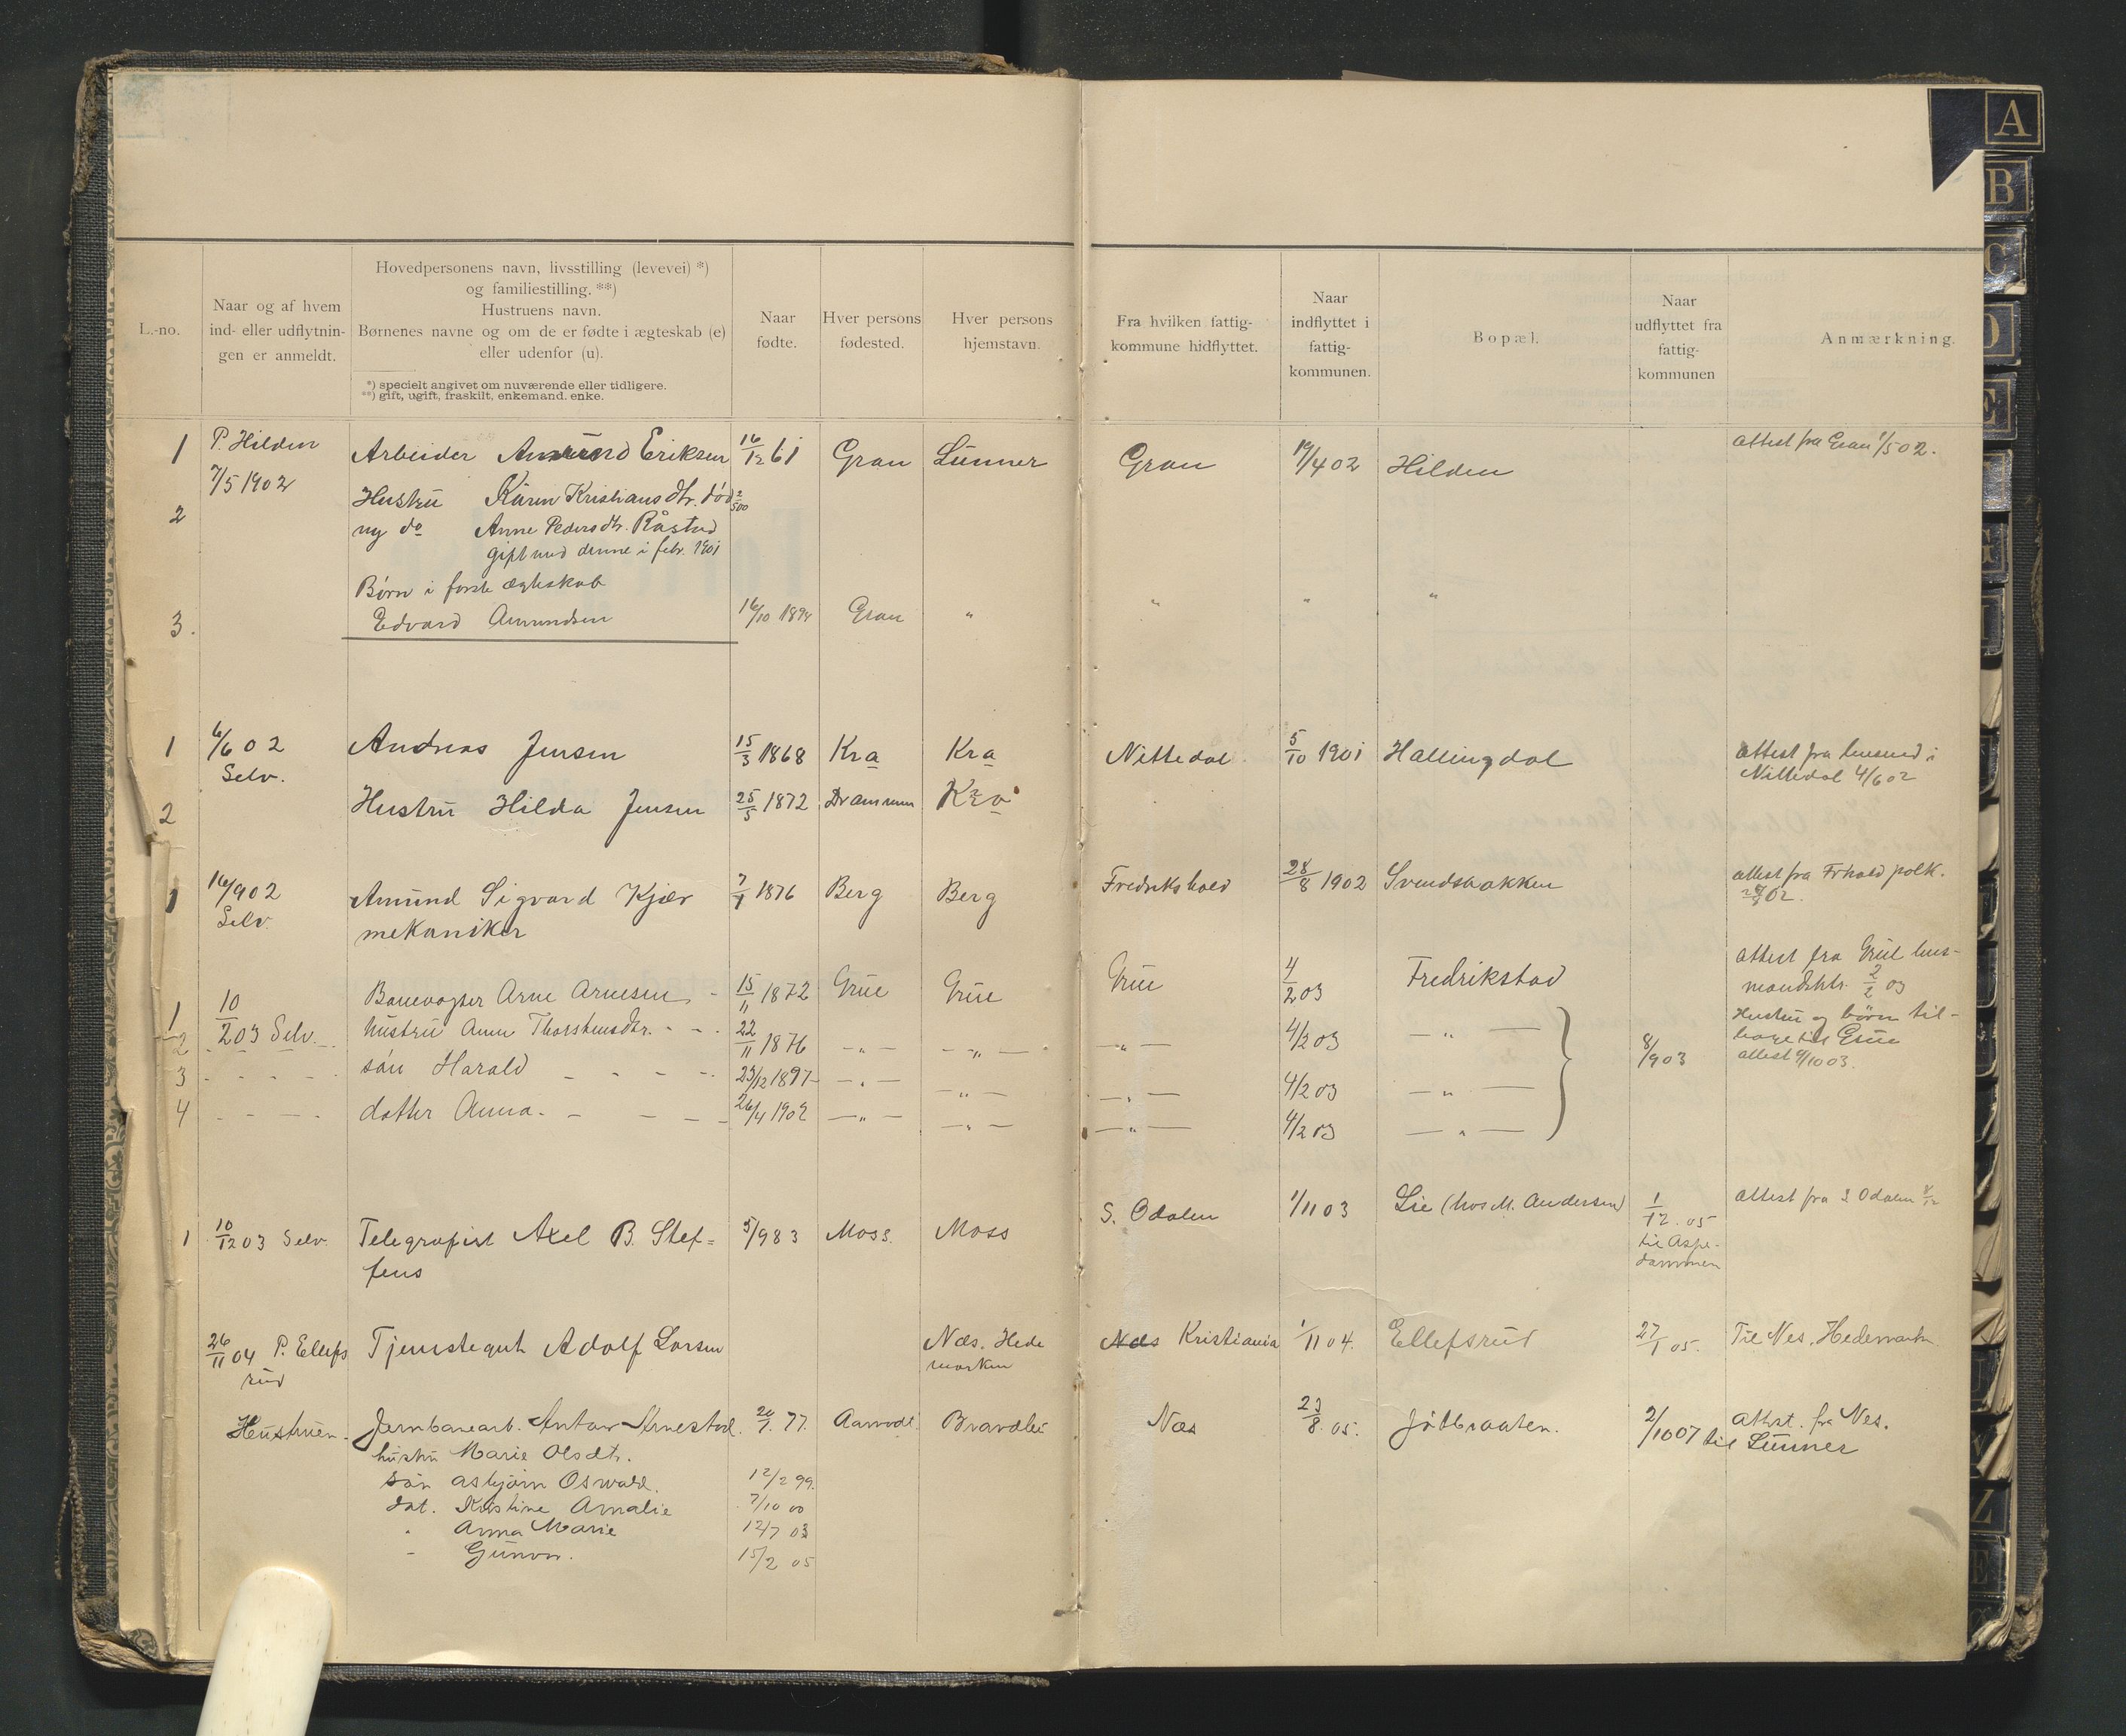 L.-no.
Naar og af hvem
ind- eller udflytnin-
gen er anmeldt.
Hovedpersonens navn, livsstilling (levevei) *)
og familiestilling. **)
Hustruens navn.
Børnenes navne og om de er fødte i ægteskab (e)
eller udenfor (u).
*) specielt angivet om nuværende eller tidligere.
**) gift, ugift, fraskilt, enkemand. enke.
Naar
fødte.
Hver persons
fødested.
Hver persons
hjemstavn.
Fra hvilken fattig-
kommune hidflyttet.
Naar
indflyttet i
fattig-
kommunen.
Bopæl.
Naar
udflyttet fra
fattig-
kommunen
Anmærkning.
A
B
C
D
E
G
U
V
Z
1 P. Hilden Arbeider Amund Eriksen 16/12 61 Gran Lunner Gran 19/4 02 Hilden attest fra Gran 1/5 02.
7/5 1902
2 Hustru Karen Kristiansdtr. død 2/5 00
ny do Anne Pedersdtr. Råstad
gift med denne i febr. 1901
Børn i første ægteskab
3. Edvard Amundsen 16/10 1894 Gran " " " "
1 6/6 02 Andreas Jensen 15/3 1868 Kra Kra Nittedal 5/10 1901 Hallingdal attest fra lensmd i
Selv. Nittedal 4/6 02
2 Hustru Hilda Jensen 25/5 1872 Drammen Kra
1 16/9 02 Amund Sigvard Kjær 7/1 1876 Berg Berg Fredrikshald 28/8 1902 Svendsbakken attest fra Frhald polk.
Selv. mekaniker
1 10/2 03 Selv. Banevogter Arne Arnesen - 15/11 1872 Grue Grue Grue 4/2 03 Fredrikstad attest fra Grue lens-
mandsktr. 2/2 03
2 hustru Anne Thorstensdtr. - - 22/11 1876 - " - - " - - " - 4/2 03 - " - 8/9 03 Hustru og børn til-
bage til Grue
attest 9/10 03.
3 - - - - søn Harald - - - - 23/12 1897 - " - - " - - " - 4/2 03 - " -
4 - - - - datter Anna. - - - - 26/4 1902 - " - - " - - " - 4/2 03 - " -
1 10/12 03 Selv. Telegrafist Axel B. Stef= 5/9 83 Moss. Moss S. Odalen 1/11 03 Lie (hos M. Andersen) 1/12. 05 attest fra S Odalen
fens til Aspe-
dammen
26/11 04 P. Ellefs Tjenestegut Adolf Larsen Næs. Hede Næs Kristiania 1/11 04. Ellefsrud 27/1 05. Til Nes. Hedemarken
rud marken
Hustruen. Jernbanearb. Anton Arnestad. 20/7. 77. Brandbu Næs 23/8. 05. Jötbraaten. 2/10 07 til Lunner attest. fra Nes.
hustru Marie Olsdtr.
søn Asbjørn Oswald. 12/2 99.
dat. Kristine Amalie 7/10 00
" Anna Marie 12/7 03
- Gunvor. 15/2 05